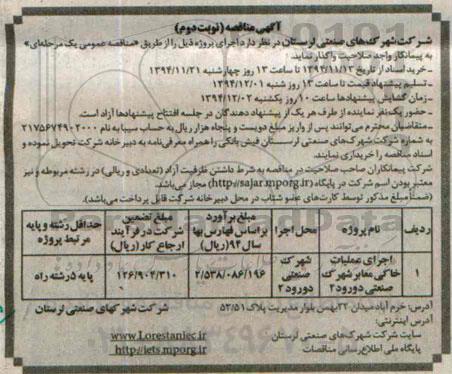 آگهی مناقصه (نوبت دوم)
شرکت شهرک‌های صنعتی لرستان در نظر دارد اجرای پروژه ذیل را از طریق «مناقصه عمومی یک مرحله‌ای»
به پیمانکار واجد صلاحیت واگذار نماید.
ـ خرید اسناد از تاریخ ۱۳۹۴/۱۱/۱۳ تا ساعت ۱۳ روز چهارشنبه ۱۳۹۴/۱۱/۲۱
ـ تسلیم پیشنهاد قیمت تا ساعت ۱۳ روز شنبه ۱۳۹۴/۱۲/۰۱
ـ زمان گشایش پیشنهادها ساعت ۱۰ روز یکشنبه ۱۳۹۴/۱۲/۰۲
ـ حضور یک‌نفر نماینده از طرف هر یک از پیشنهاد دهندگان در جلسه افتتاح پیشنهادها آزاد است.
ـ متقاضیان محترم می‌توانند پس از واریز مبلغ دویست و پنجاه هزار ریال به حساب سیبا به نام ۲۱۷۵۶۷۴۹۰۲۰۰۰
به شماره شرکت شهرک‌های صنعتی لرستان فیش بانکی را همراه معرفی‌نامه به دبیرخانه شرکت تحویل نموده و
اسناد مناقصه را خریداری نمایند.
شرکت پیمانکاران صاحب صلاحیت در مناقصه به شرط داشتن ظرفیت آزاد (تعدادی و ریالی) در رشته مربوطه و نیز
معتبر بودن اسم شرکت در پایگاه (http://sajar.mporg.ir) مجاز می‌باشد.
(ضمناً مبلغ مذکور توسط کارت‌های عضو شتاب در محل دبیرخانه شرکت قابل پرداخت می‌باشد.)
ردیف نام پروژه محل اجرا مبلغ برآورد براساس فهارس بها سال ۹۴ (ریال) مبلغ تضمین شرکت در فرآیند ارجاع کار (ریال) حداقل رشته و پایه مرتبط پروژه
۱ اجرای عملیات خاکی معابر شهرک صنعتی دورود ۲ شهرک صنعتی دورود ۲ ۲/۵۳۸/۰۸۶/۱۹۶ ۱۲۶/۹۰۴/۳۱۰ پایه ۵ رشته راه
آدرس: خرم آباد میدان ۲۲ بهمن بلوار مدیریت پلاک ۵۲/۵۱ شرکت شهرکهای صنعتی لرستان
آدرس اینترنتی:
سایت شرکت شهرک‌های صنعتی لرستان www.Lorestaniec.ir
پایگاه ملی اطلاع‌رسانی مناقصات http://iets.mporg.ir